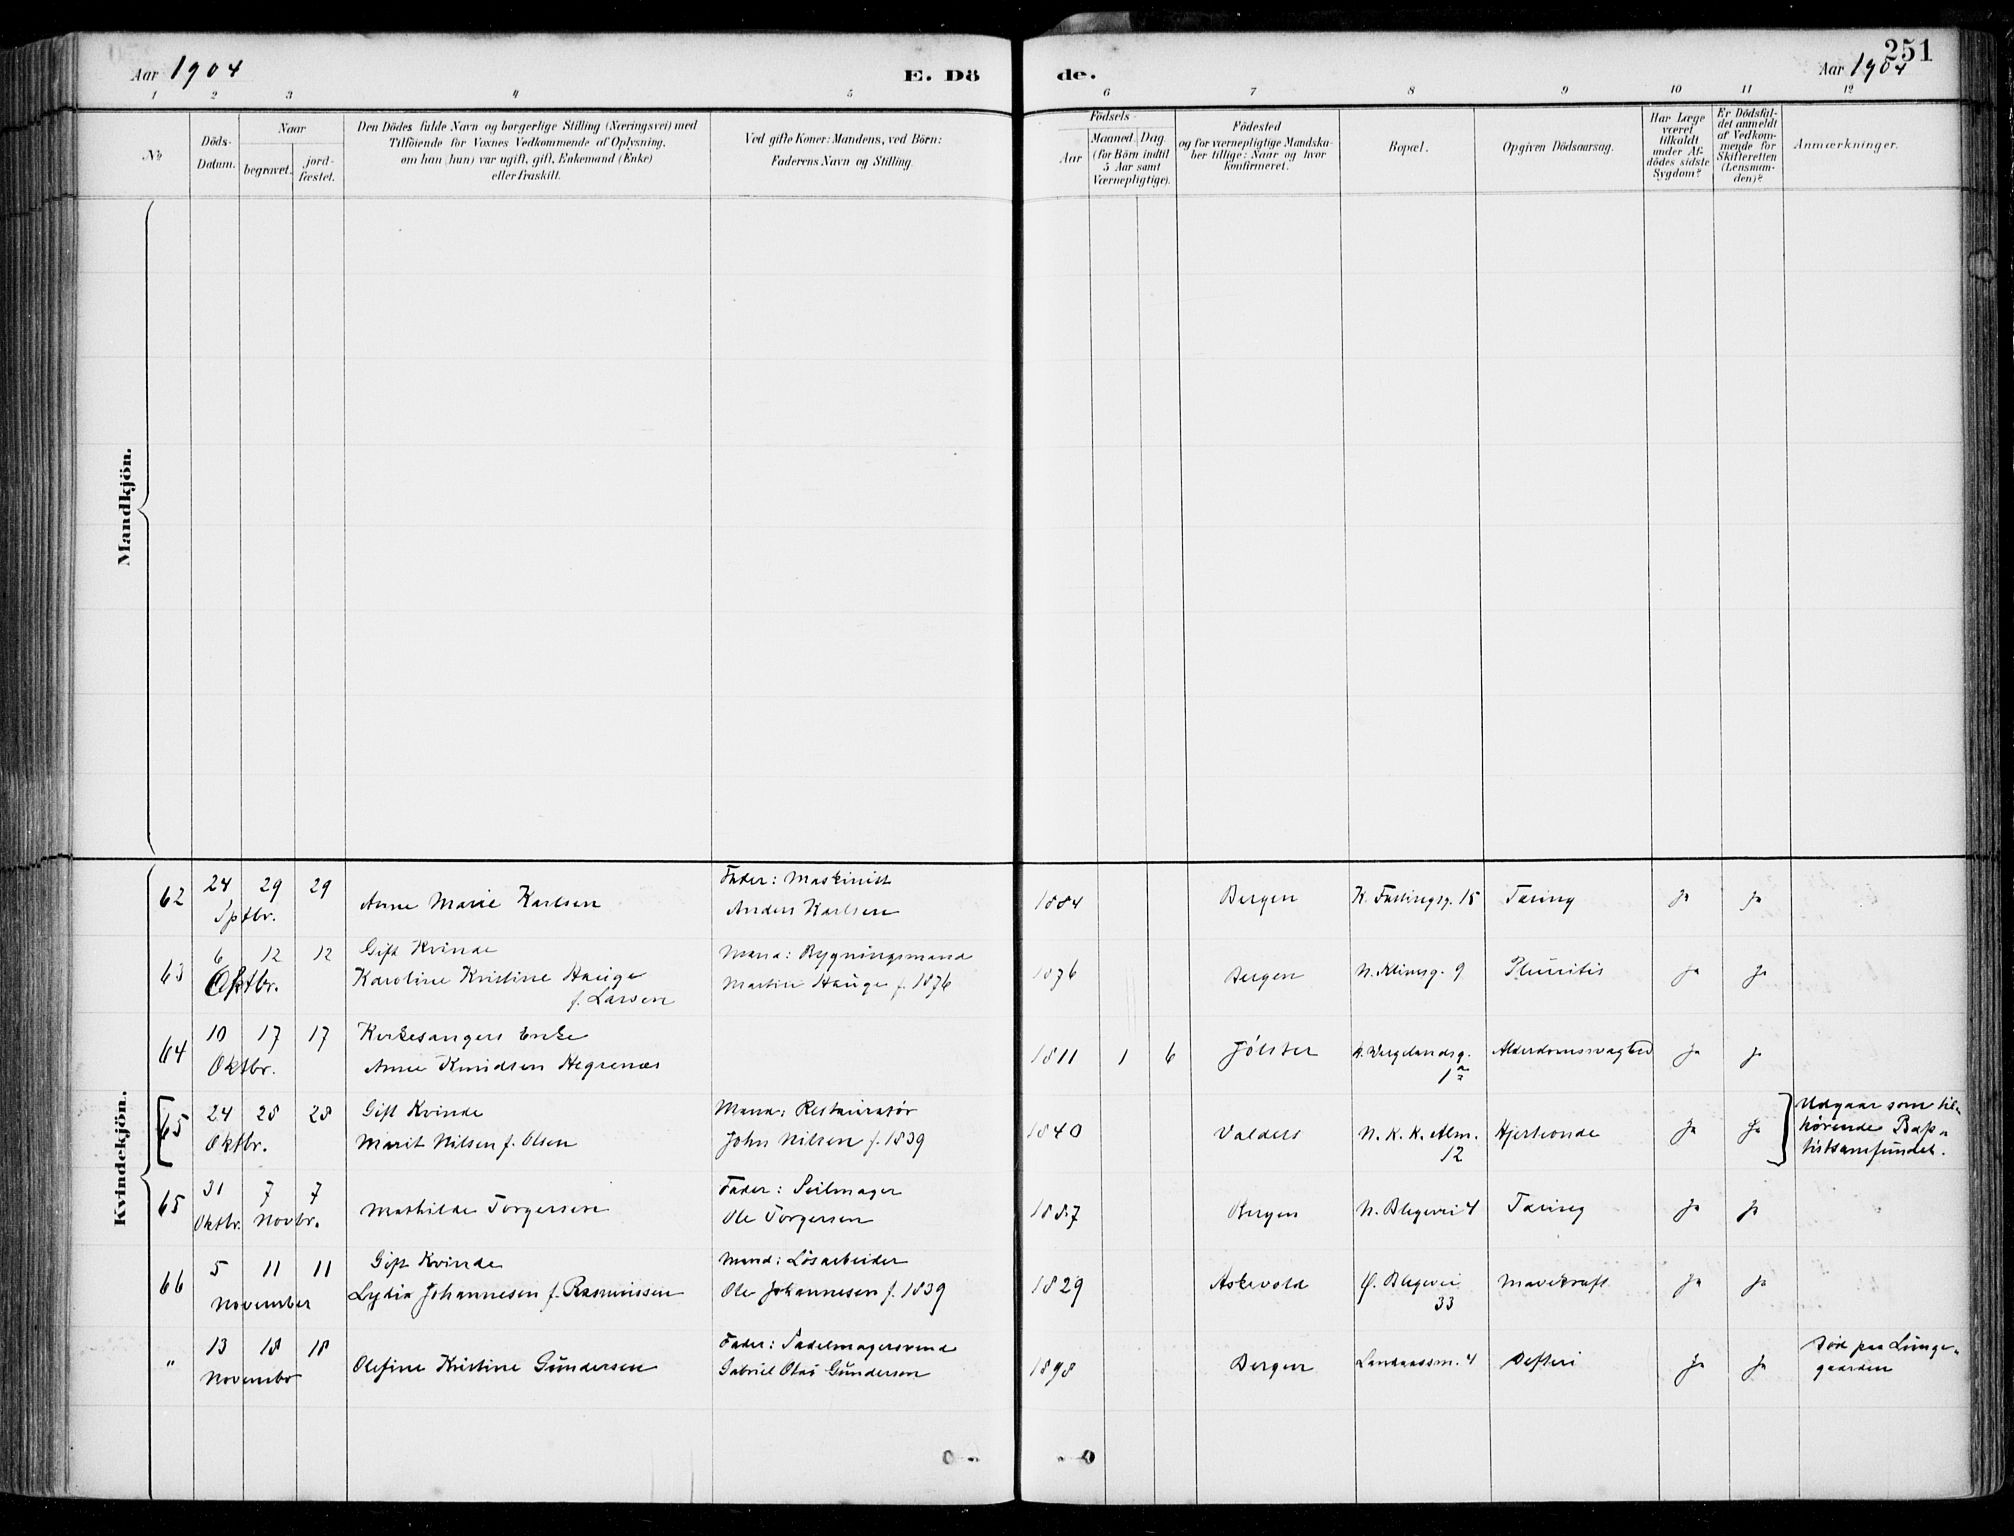 251
Aar 1904
E. Dö
de.
Aar 1904
1 2 3 4 5 6 7 8 9 10 11 12
№
Döds-
Datum.
Naar
begravet.
jord-
fæstet.
Den Dödes fulde Navn og borgerlige Stilling (Næringsvei) med
Tilföiende for Voxnes Vedkommende af Oplysning,
om han (hun) var ugift, gift, Enkemand (Enke)
eller fraskilt.
Ved gifte Koner: Mandens, ved Börn:
Faderens Navn og Stilling.
Födsels
Aar
Maaned. Dag
(for Börn indtil
5 Aar samt
Værnepligtige).
Födested
og for værnepligtige Mandska-
ber tillige: Naar og hvor
konfirmeret.
Bopæl.
Opgiven Dödsaarsag.
Har Læge
været
tilkaldt
under Af-
dödes sidste
Sygdom?
Er Dödsfal-
det anmeldt
af Vedkom-
mende for
Skifteretten
(Lensman-
den)?
Anmærkninger.
Mandkjön.
Kvindekjön.
62 24 29 29 Fader: Maskinist
Sptbr. Anne Marie Karlsen Anders Karlsen 1884 Bergen K. Fastingsg. 15 Taring Ja Ja
63 6 12 12 Gift Kvinde Mand: Bygningsmand
Oktbr. Karoline Kristine Hauge Martin Hauge f. 1876 1876 Bergen 9 Pleuritis Ja Ja
f. Larsen
64 10 17 17 Kirkesangers Enke
Oktbr. Anne Knudsen Hegrenæs 1811 1 6 Jölster Wergelandsg. Alderdomssvaghed Ja Ja
1a
65 24 28 28 Gift Kvinde Mand: Restauratør
Oktbr. Marit Nilsen f. Olsen John Nilsen f. 1839 1840 Valders N. K. K. Alm. Hjerteonde Ja Ja
12
Udgaar som til-
hørende Bap-
tistsamfundet.
65 31 7 7 Fader: Seilmager
Oktbr. Novbr. Mathilde Torgersen Ole Torgersen 1887 Bergen N. Blegevei 4 Taring Ja Ja
66 5 11 11 Gift Kvinde Mand: Lösarbeider
November Lydia Johannesen f. Rasmussen Ole Johannesen f. 1839 1829 Askevold Ø. Blegevei Mavekræft Ja Ja
33
" 13 18 18 Fader: Sadelmagersvend
November Olefine Kristine Gundersen Gabriel Olai Gundersen 1898 Bergen Landaassm. 4 Difteri Ja Ja
Död paa Lunge-
gaarden